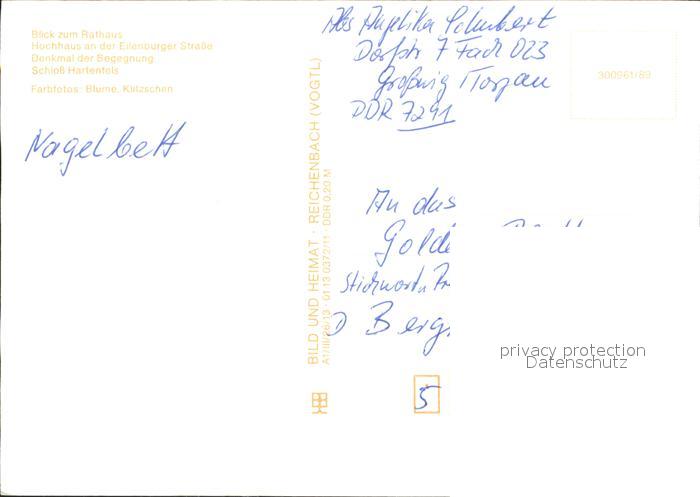 Blick zum Rathaus
Hochhaus an der Eilenburger Straße
Denkmal der Begegnung
Schloß Hartenfels
Farbfotos: Blume, Klitzschen
Nagelbett
BILD UND HEIMAT · REICHENBACH (VOGTL)
A1/III/26/13 · 01 13 0372/11 · DDR 0,20 M
Abs Angelika Schubert
Dorfstr 7 Fach 023
Großwig / Torgau
DDR 7291
300961/89
An das
Stichwort
D
5
privacy protection
Datenschutz